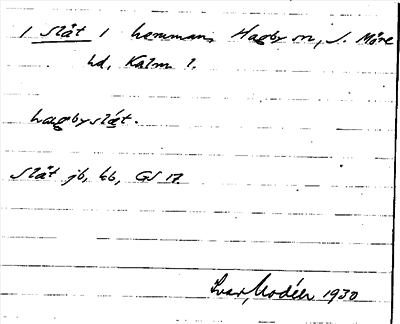 1 Slåt 1 hemman, Hagby sn, S. Möre
hd, Kalm l.
hagbyslåt.
Slåt jb, kb, GS 17
Ivar Modéer 1930